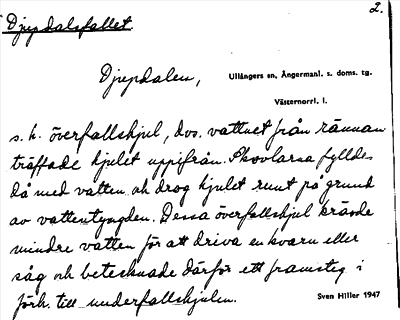 2.
Djupdalsfallet.
Djupdalen,
Ullångers sn, Ångermanl. s. doms. tg.
Västernorrl. l.
s. k. överfallshjul, dvs. vattnet från rännan
träffade hjulet uppifrån. Skovlarna fylldes
då med vatten och drog hjulet runt på grund
av vattentyngden. Dessa överfallshjul krävde
mindre vatten för att driva en kvarn eller
såg och betecknade därför ett framsteg i
förh. till underfallshjulen.
Sven Hiller 1947